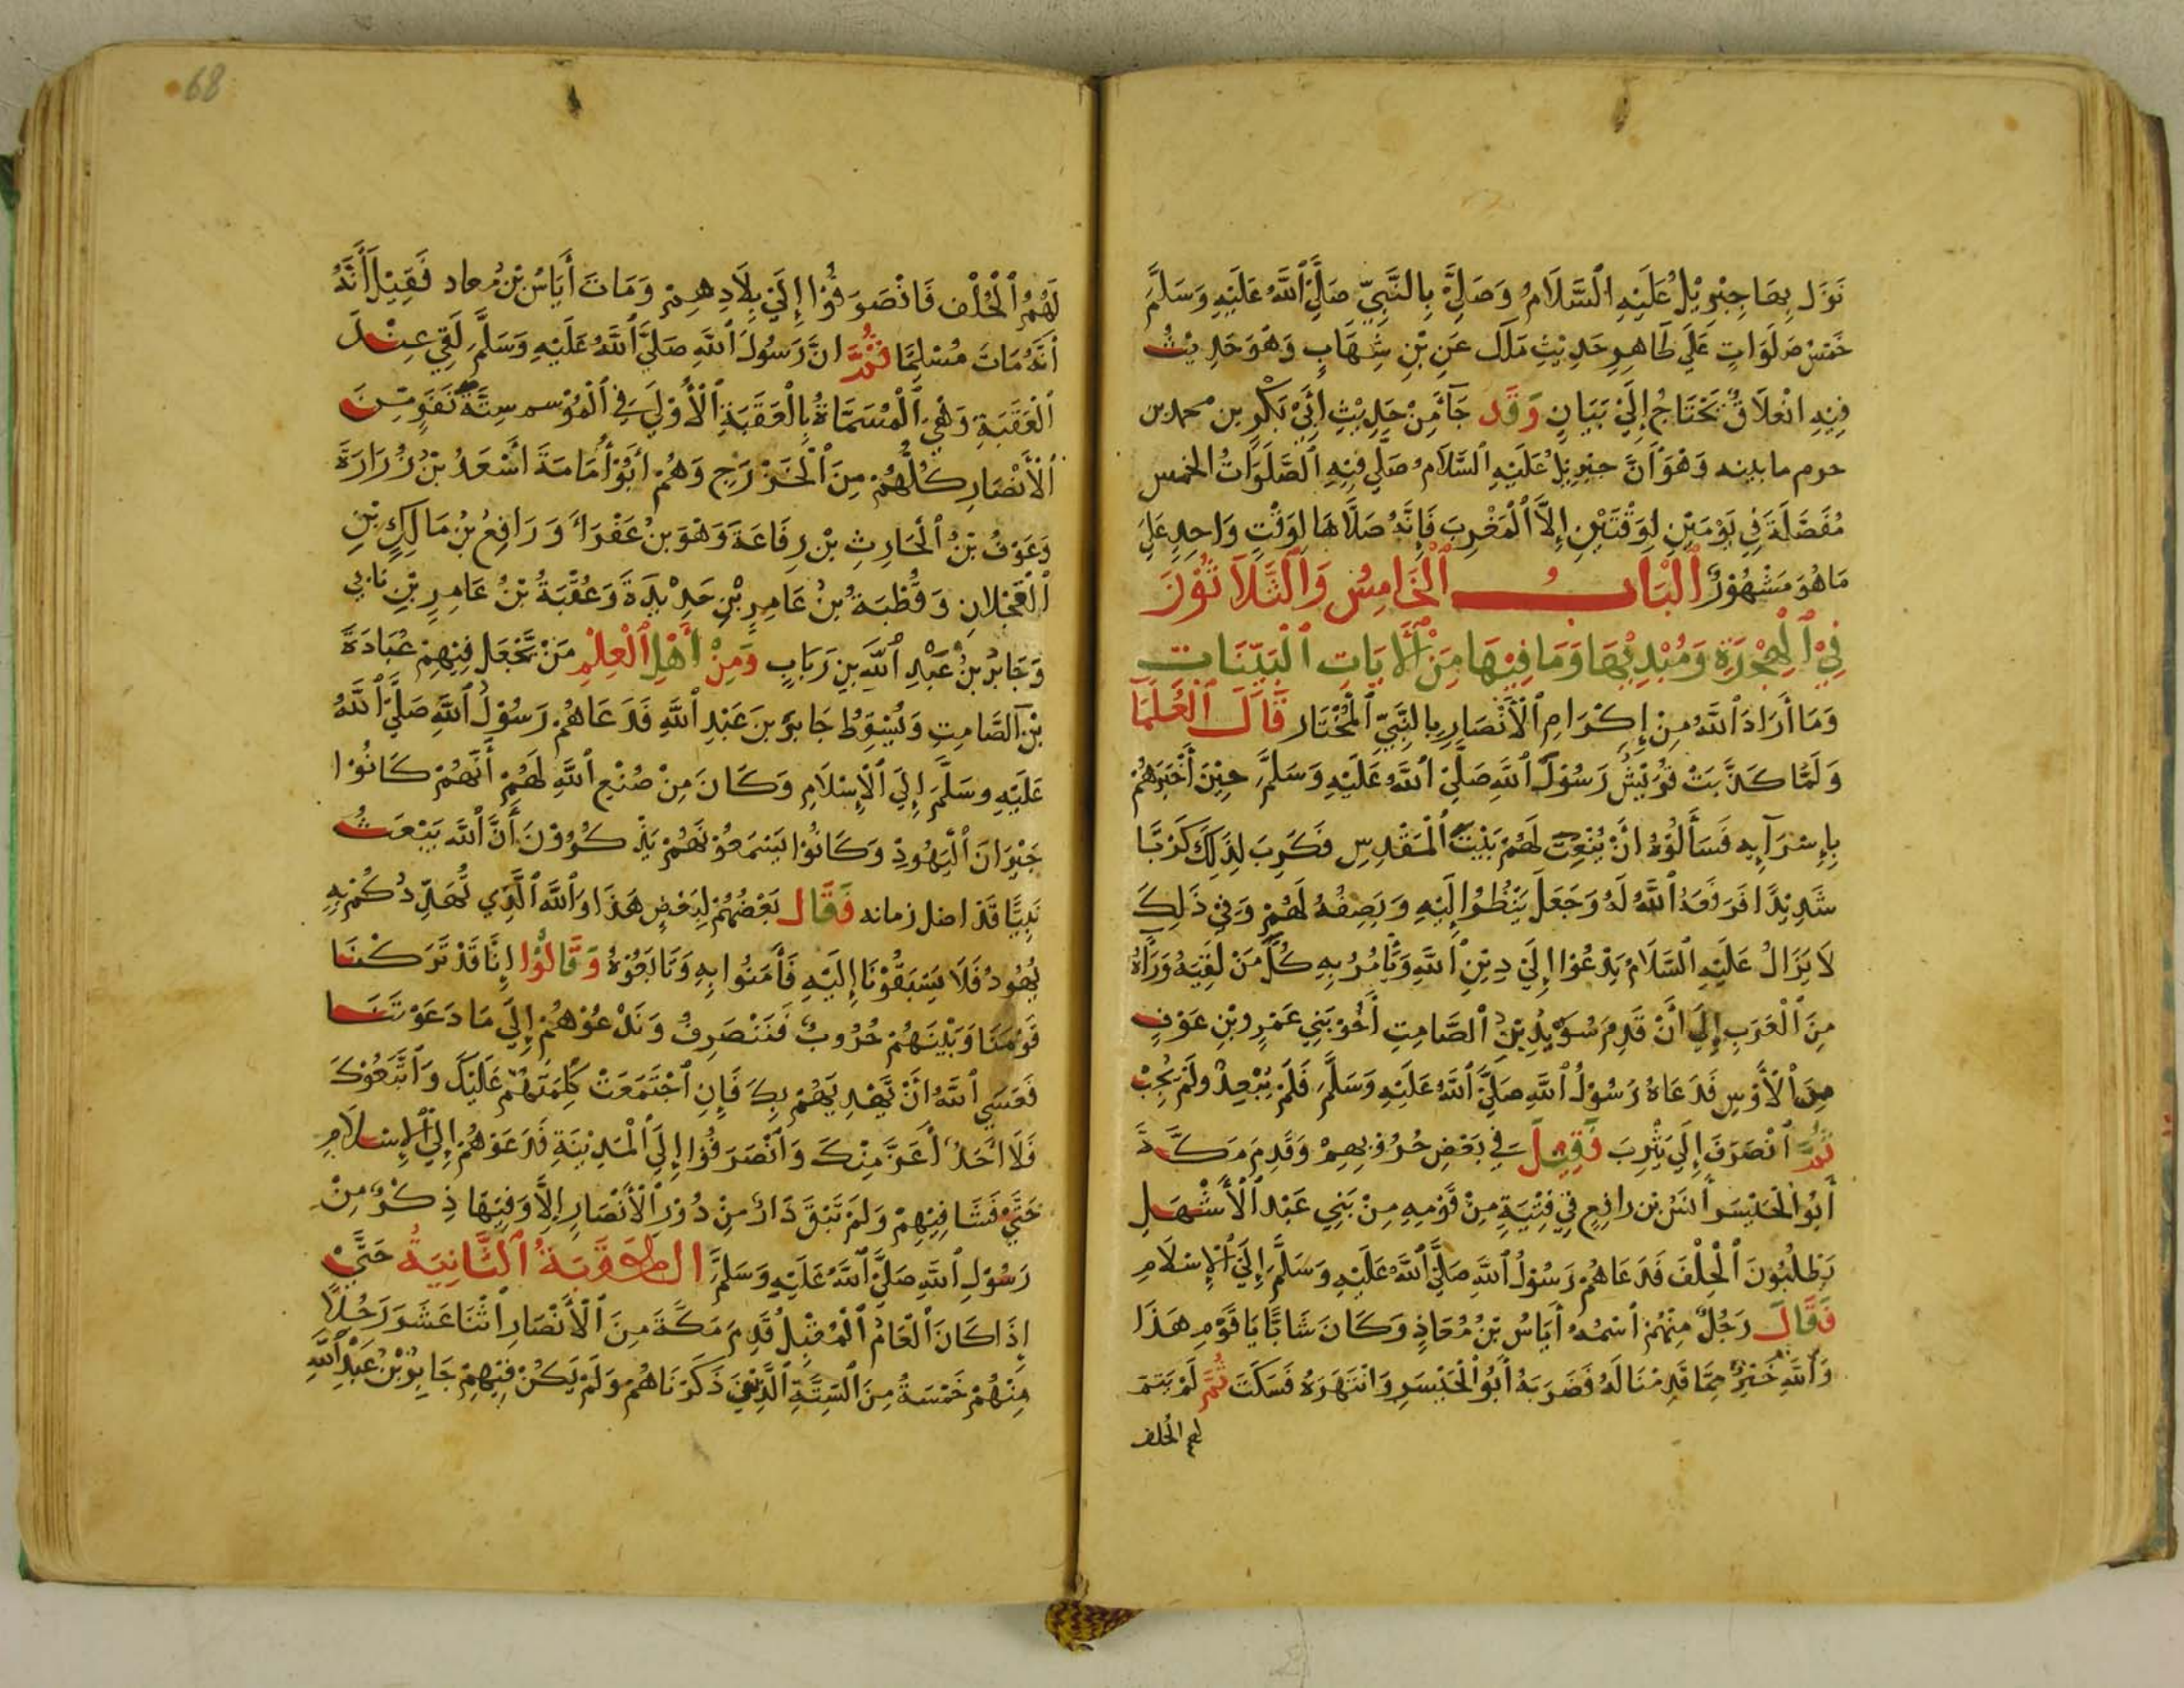 نَزَلَ بِهَا جِبْرِيْلُ عَلَيْهِ ٱلسَّلَامُ وَصَلَّيٰ بِالنَّبِيِّ صَلَّيٰ ٱللَّهُ عَلَيْهِ وَسَلَّمَ
خَمْسَ صَلَوَاتٍ عَلَي ظَاهِرِ حَدِيْثِ مَلَك عَنِ بْنِ شِهَابٍ وَهُوَ حَدِيْثُ
فِيْهِ انْغِلَاقٌ يَحْتَاجُ إِلَيٰ بَيَانٍ وَقَد جَآءَ مِنْ حَدِيْثِ ابِيْ بَكْرِ بن محمد بن
حزم ما بينه وَهُوَ أَنَّ جِبْرِيْلُ عَلَيْهِ السَّلَامُ صَلَّي فِيْهِ ٱلصَّلَوَاتُ الخمس
مُفَصَّلَةً فِي يَوْمَيْنِ لِوَقْتَيْنِ إِلَّا ٱلْمَغْرِبَ فَإِنَّهُ صَلَّاهَا لِوَقْتٍ وَاحِدٍ عَلَيٰ
مَا هُوَ مَشْهُوْرٌ ٱلْبَابُ ٱلْخَامِسُ وَٱلثَّلَاثُوْنَ
فِيْ ٱلْهِجْرَةِ وَمُبْدِئِهَا وَمَا فِيْهَا مِنْ ٱلْأَيَاتِ ٱلْبَيِّنَاتِ
وَمَا أَرَادَ ٱللَّهُ مِنْ إِكْرَامِ ٱلْأَنْصَارِ بِالنَّبِيِّ ٱلْمُخْتَارِ قَالَ ٱلْعُلَمَا
وَلَمَّا كَذَّبَتْ قُرَيْشُ رَسُوْلَ ٱللَّهِ صَلَّيٰ ٱللَّهُ عَلَيْهِ وَسَلَّمَ حِيْنَ أَخْبَرَهُمْ
بِإِسْرَآيِهِ فَسَأَلُوْهُ انْ يُنْعِتَ لَهُمْ بَيْتَ ٱلْمَقْدِسِ فَكَرِبَ لِذَلِكَ كَرْبًا
شَدِيْدًا فَرَفَعَهُ ٱللَّهُ لَهُ وَجَعَلَ يَنْظُرُ إِلَيْهِ وَيَصِفُهُ لَهُمْ وَفِيْ ذَلِكَ
لَا يَزَالُ عَلَيْهِ ٱلسَّلَامُ يَدْعُوْا إِلَيٰ دِيْنِ ٱللَّهِ وَيَأْمُرُ بِهِ كُلَّ مَنْ لَقِيَهُ وَرَآهُ
مِنَ ٱلْعَرَبِ إِلَيٰ أَنْ قَدِمَ سُوَيْدُ بْنُ ٱلصَّامِتِ أَخُوْ بَنِي عَمْرِو بْنِ عَوْفٍ
مِنَ ٱلْأَوْسِ فَدَعَاهُ رَسُوْلُ ٱللَّهِ صَلَّيٰ ٱللَّهُ عَلَيْهِ وَسَلَّمَ فَلَمْ يُبْعِدْ ولَمْ يُجِبْ
ثُمَّ ٱنْصَرَفَ إِلَيٰ يَثْرِبَ فَقِيْلَ فِي بَعْضِ حُرُوْبِهِمْ وَقَدِمَ مَكَّةَ
أَبُوْا ٱلْحَيْسَر أنَسُ بْن رافِعٍ فِيْ فِتْيَةٍ مِنْ قَوْمِهِ مِنْ بَنِي عَبْدِ ٱلْأَشْهَلِ
يَطْلُبُوْنَ ٱلْحِلْفَ فَدَعَاهُمْ رَسُوْلُ ٱللَّهِ صَلَّيٰ ٱللَّهُ عَلَيْهِ وَسَلَّمَ إِلَيٰ ٱلْإِسْلَامِ
فَقَالَ رَجُلٌ مِنْهُمْ ٱسْمُهُ أَيَاسُ بْنُ مُعَاذٍ وَكَانَ شَابًّا يَا قَوْمِ هَذَا
وَٱللَّهِ خَيْرٌ مِمَّا قَدِمْنَا لَهُ فَضَرَبَهُ أَبُوْ ٱلْحَيْسَرِ وَانْتَهَرَهُ فَسَكَتَ ثُمَّ لَمْ يَتِمَّ
لهم الحلف
68
لَهُمُ ٱلْحُلْف فَانْصَرَفُوْا إِلَيٰ بِلَادِهِمْ وَمَاتَ أَيَاسُ بْنُ مُعاد فَقِيْلَ أَنَّهُ
أَنَّهُ مَاتَ مُسْلِمًا ثُمَّ انَّ رَسُوْلَ ٱللَّهِ صَلَّيٰ ٱللَّهُ عَلَيْهِ وَسَلَّمَ لَقِيَ عِنْدَ
ٱلْعَقَبَةِ وَهْيَ ٱلْمُسَمَّاةُ بِالْعَقَبَةِ ٱلْأُوْلَيٰ فِي ٱلْمُوْسم سِتَّةَ نَفَرٍ مِّنَ
ٱلْأَنْصَارِ كُلُّهُمْ مِنَ ٱلْخَزْرَجِ وَهُمْ أَبُوْ أُمَامَةَ أَسْعَدُ بْنُ زُرَارَةَ
وَعَوْفُ بْنُ ٱلْحَارِثِ بْنِ رِفَاعَةَ وَهْوَ بنُ عَفْرَاءَ وَرَافِعُ بْنُ مَالِكِ بْنِ
ٱلْعَجْلَانِ وَقُطْبَةُ بْنُ عَامِرِ بْنِ حَدِيْدَةَ وَعُقْبَةُ بْنُ عَامِرِ بْنِ نَابي
وَجَابِرُ بْنُ عَبْدِ ٱللَّهِ بْنِ رَبَابٍ وَمِنْ أَهْلِ ٱلْعِلْمِ مَنْ يَّجْعَل فِيْهِمْ عُبَادَةَ
بْنَ ٱلصَّامِتِ وَيُسْقِطُ جَابِرَ بْنَ عَبْدِ ٱللَّهِ فَدَعَاهُمْ رَسُوْلُ ٱللَّهِ صَلَّيٰ ٱللَّهُ
عَلَيْهِ وسَلَّمَ إِلَيٰ ٱلْإِسْلَامِ وَكَانَ مِنْ صُنْعِ ٱللَّهِ لَهُمْ أَنَّهُمْ كَانُوْا
جَيْرَانَ ٱلْيَهُودِ وَكَانُوْا يَسْمَعُوْنَهُمْ يَذْكُرُوْنَ أَنَّ ٱللَّهَ يَبْعَثُ
نَبِيًّا قَدْ اضل زمانه فَقَالَ بَعْضُهُمْ لِبَعْضٍ هَذَا وَٱللَّهِ ٱلَّذِي تُهَدِّدُكُمْ بِهِ
يُهُودُ فَلَا يَسْبَقُوْنَا إِلَيْهِ فَأَمَنُوا بِهِ وَتَابَعُوْهُ وَقَالُوْا إِنَّا قَدْ تَرَكْنَا
قَوْمَنَا وَبَيْنَهُمْ حُرُوبٌ فَنَنْصَرِفُ وَنَدْعُوْهُمْ إِلَيٰ مَا دَعَوْتَنَا
فَعَسَيٰ ٱللَّهُ أَنْ يَّهْدِيَهُمْ بِكَ فَإِنِ ٱجْتَمَعَتْ كَلِمَتُهُمْ عَلَيْكَ وَٱتَّبَعُوْكَ
فَلَا أَحَدٌ أَعَزَّ مِنْكَ وَٱنْصَرَفُوْا إِلَيٰ ٱلْمَدِيْنَةِ فَدَعَوْهُمْ إِلَيٰ ٱلْإِسْلَامِ
حَتَّيٰ فَشَا فِيْهِمْ وَلَمْ تَبْقَ دَارٌ مِنْ دُوْرِ ٱلْأَنْصَارِ إِلَّا وَفِيْهَا ذِكْرٌ مِنْ
رَسُوْلِ ٱللَّهِ صَلَّيٰ ٱللَّهُ عَلَيْهِ وَسَلَّمَ ٱلثَّانِيَةُ حَتَّيٰ
إِذَا كَانَ ٱلْعَامُ ٱلْمُقْبِلُ قَدِمَ مَكَّةَ مِنَ ٱلْأَنْصَارِ اثْنَا عَشَرَ رَجُلًا
مِنْهُمْ خَمْسَةُ مِنَ ٱلسِّتَّةِ ٱلَّذِيْنَ ذَكَرْنَاهُمْ وَلَمْ يَكُنْ فِيْهِمْ جَابِرُ بْنُ عَبْدِ ٱللَّهِ